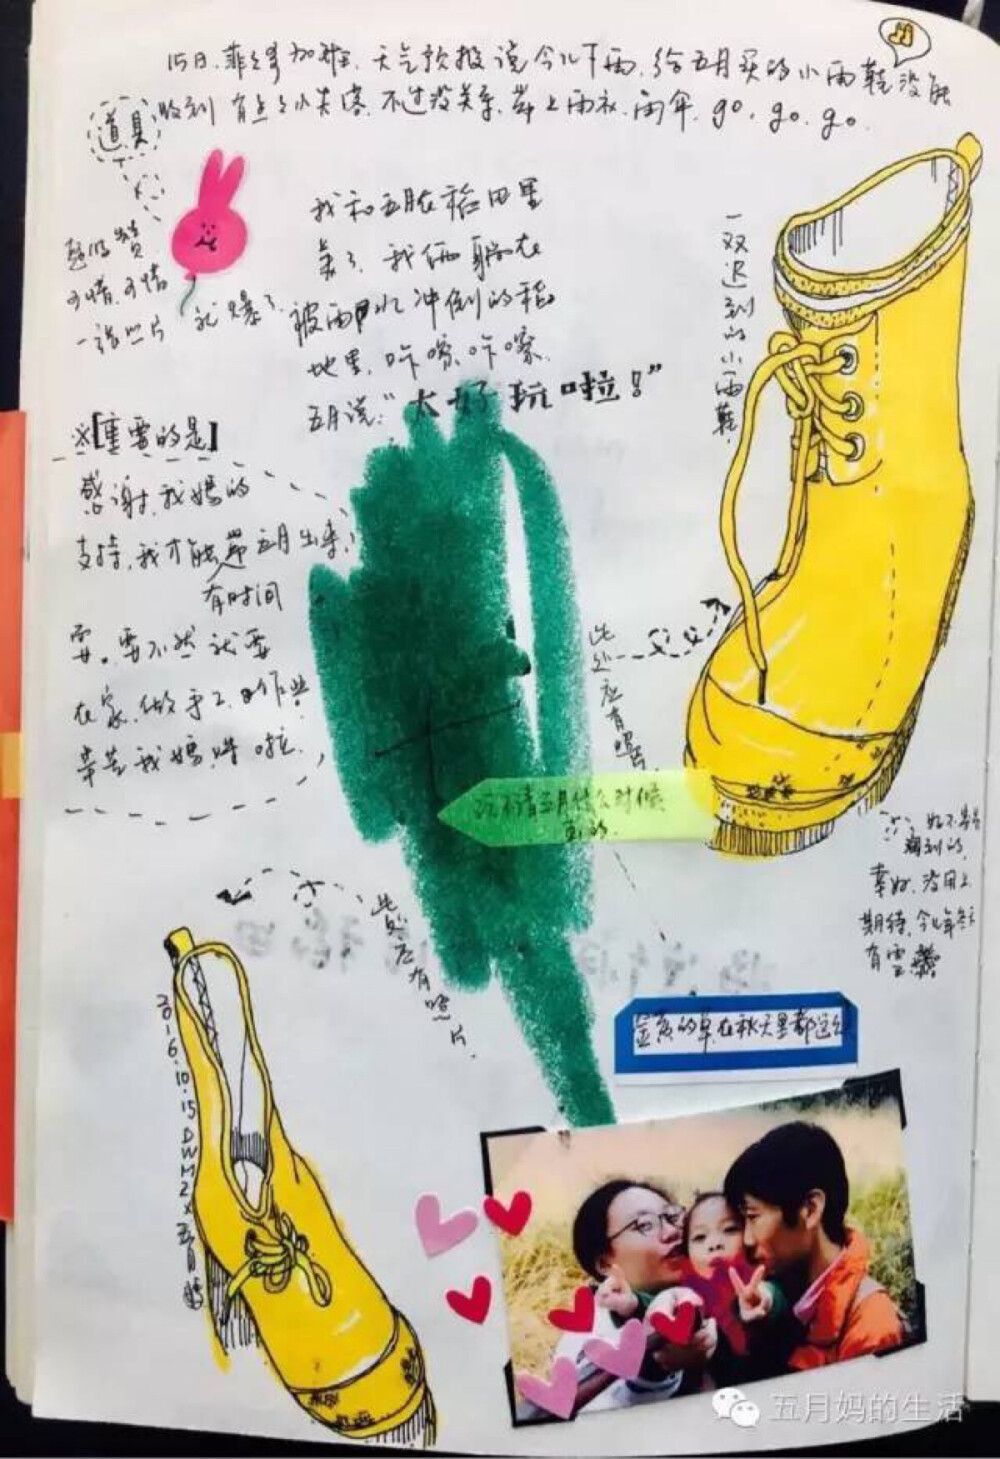 15日.菲 加班.天气预报说今儿下雨.给五月买的小雨鞋没能
收到 有点小失落.不过没关系.带上雨衣.雨伞.go.go.go.
道具
一张照片 就爆了
我和五月在稻田里
我俩躺在
被雨水冲倒的稻
地里.咔嚓.咔嚓.
五月说:“太好玩啦!”
一双迟到的小雨鞋.
※[重要的是]
感谢我妈的
支持,我才能带五月出来
有时间
耍。要不然就要
在家.做手工.
辛苦我妈 啦.
此处应有照片.
五月什么时候
画的.
此处应有照片.
幸好.没用上
期待.今年冬天
有雪
金黄的草在秋天里都这
2016.10.15 DWMZX五月
五月妈的生活